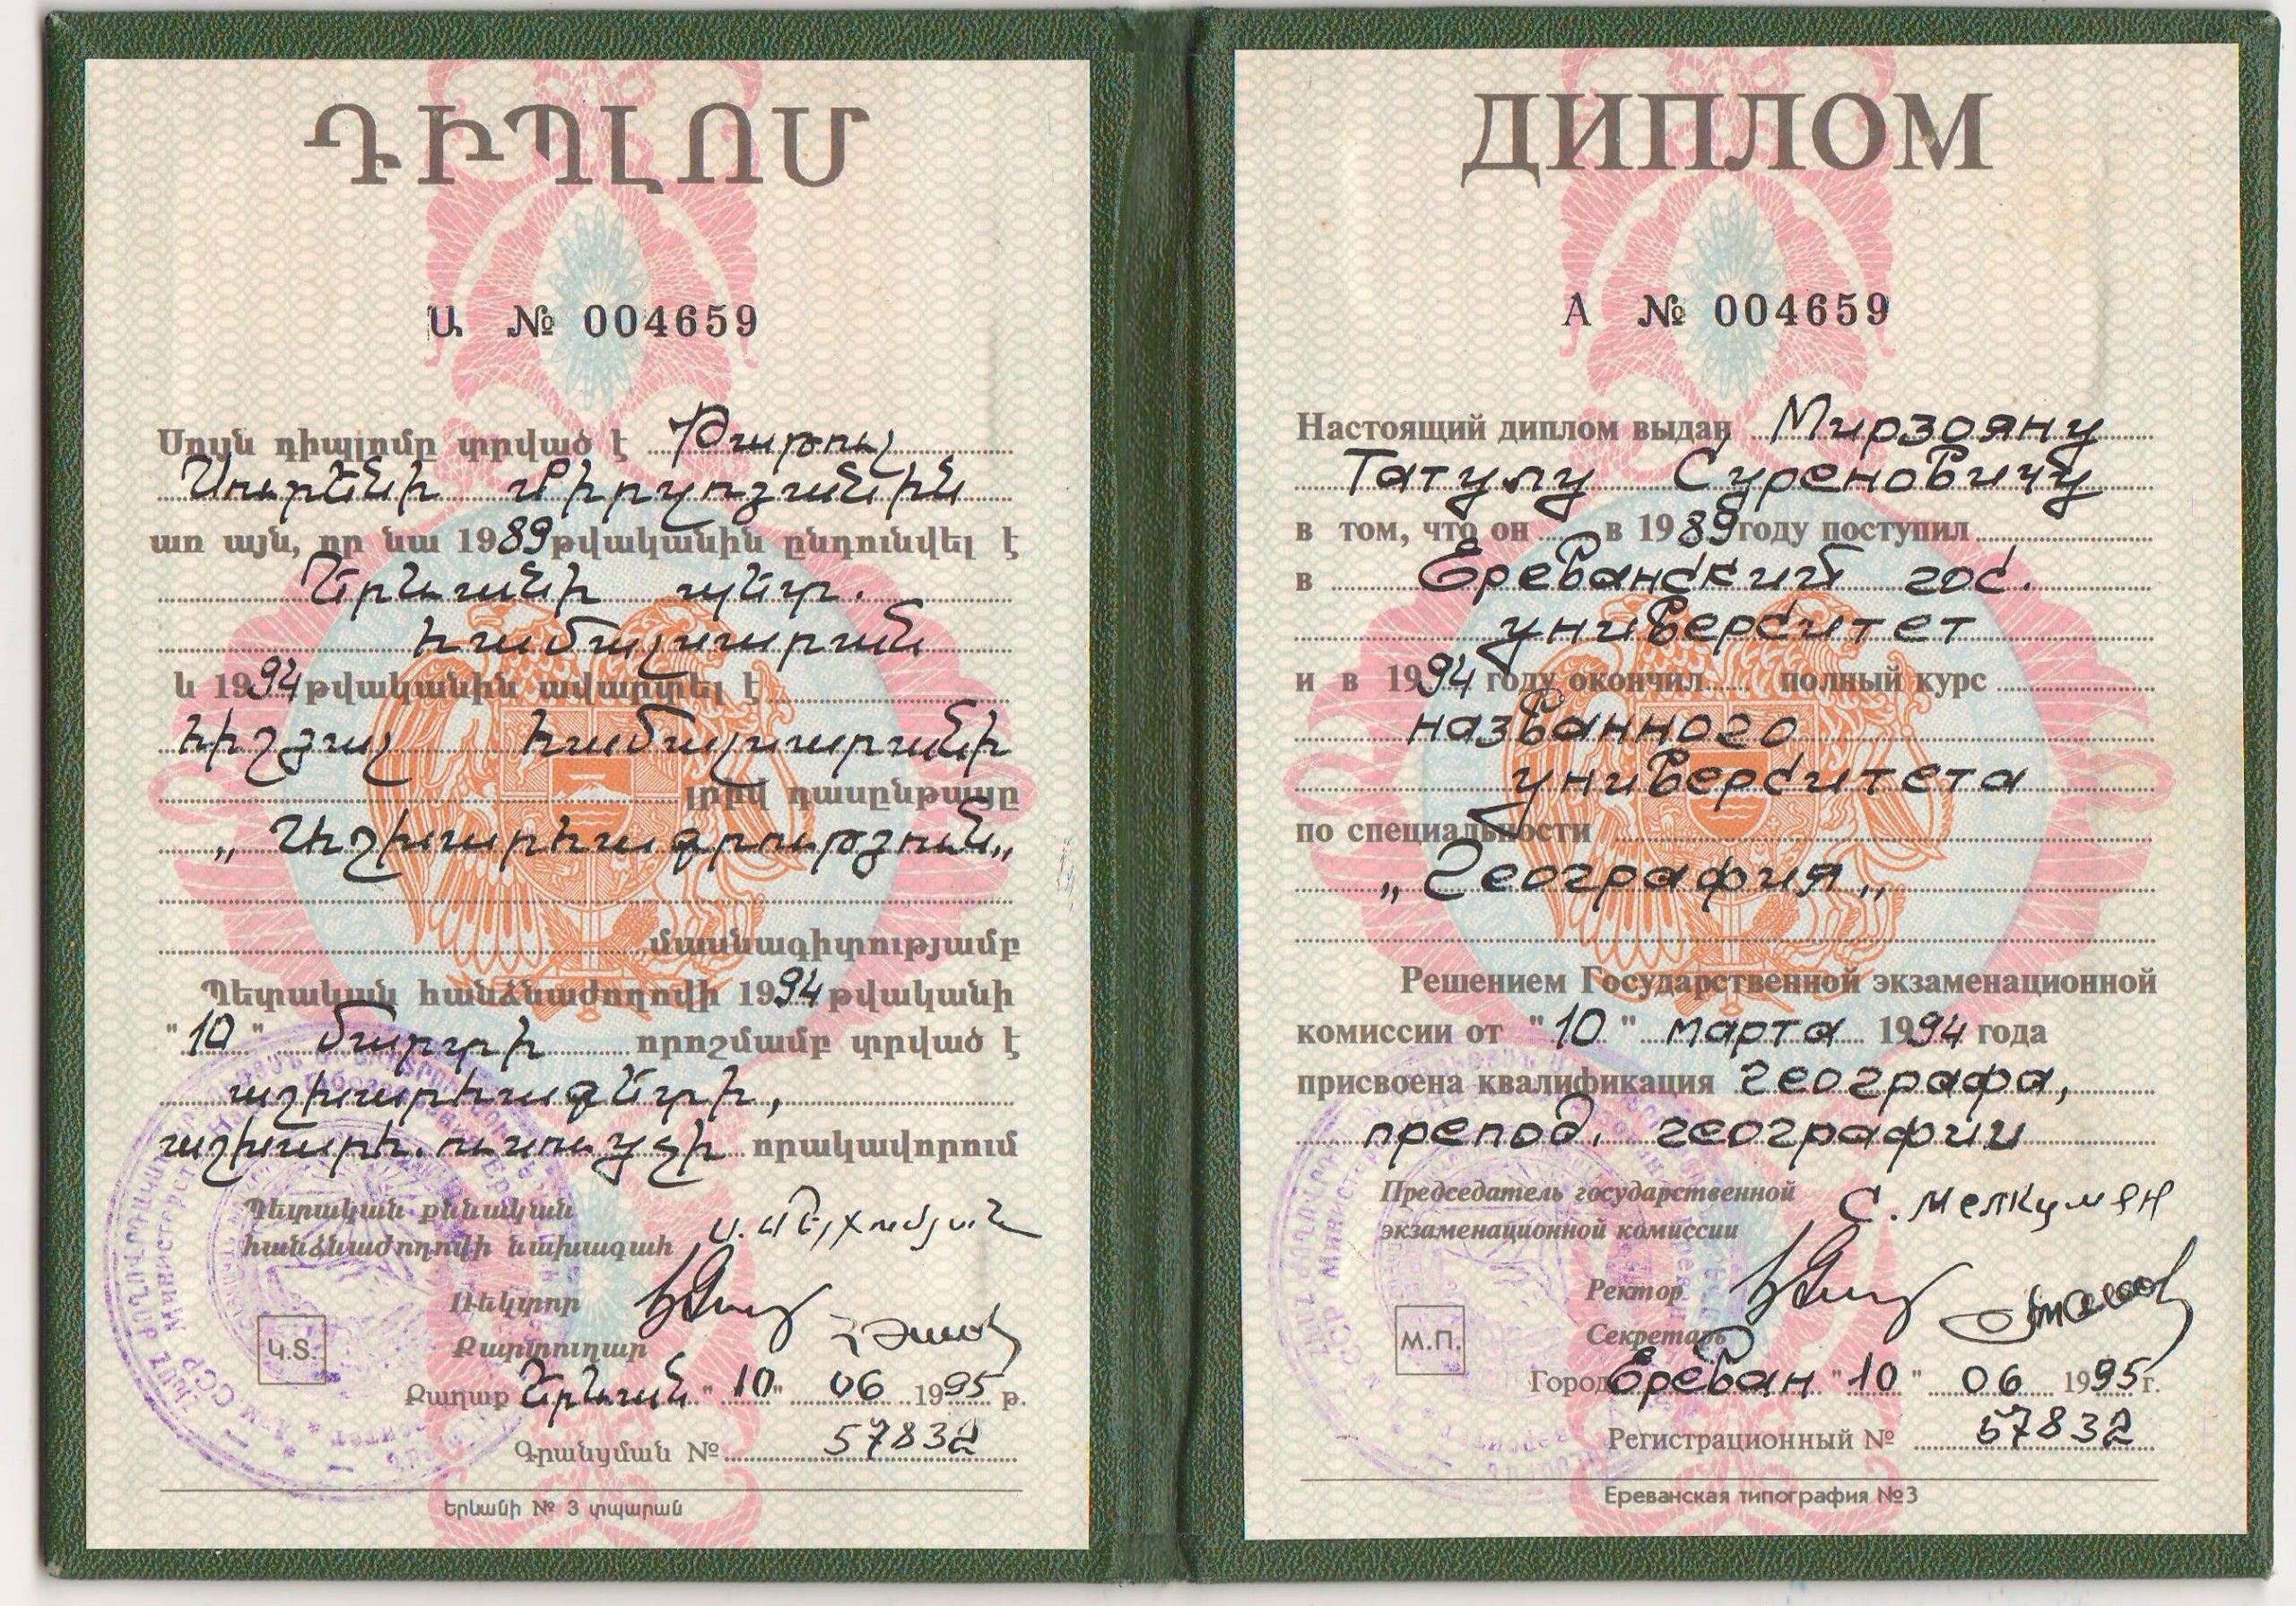 ԴԻՊԼՈՄ
Ա № 004659
Սույն դիպլոմը տրված է Թաթուլ
Սուրենի Միրզոյանին
առ այն, որ նա 1989 թվականին ընդունվել է
Երևանի պետ.
համալսարան
և 1994 թվականին ավարտել է
հիշյալ համալսարանի
լրիվ դասընթացը
„Աշխարհագրություն„
մասնագիտությամբ
Պետական հանձնաժողովի 1994 թվականի
"10" մարտի որոշմամբ տրված է
աշխարհագետի,
աշխարհ. ուսուցչի որակավորում
Պետական քննական
հանձնաժողովի նախագահ Ս. Մելքումյան
Ռեկտոր
Քարտուղար
Կ.Տ.
Քաղաք Երևան "10" 06 1995 թ.
Գրանցման № 57832
Երևանի № 3 տպարան
ДИПЛОМ
А № 004659
Настоящий диплом выдан Мирзояну
Татулу Суреновичу
в том, что он в 1989 году поступил
в Ереванский гос.
университет
и в 1994 году окончил полный курс
названного
университета
по специальности
„География„
Решением Государственной экзаменационной
комиссии от "10" марта 1994 года
присвоена квалификация географа,
препод. географии
Председатель государственной
экзаменационной комиссии С. Мелкумян
Ректор
Секретарь
М.П.
Город Ереван "10" 06 1995 г.
Регистрационный № 57832
Ереванская типография №3